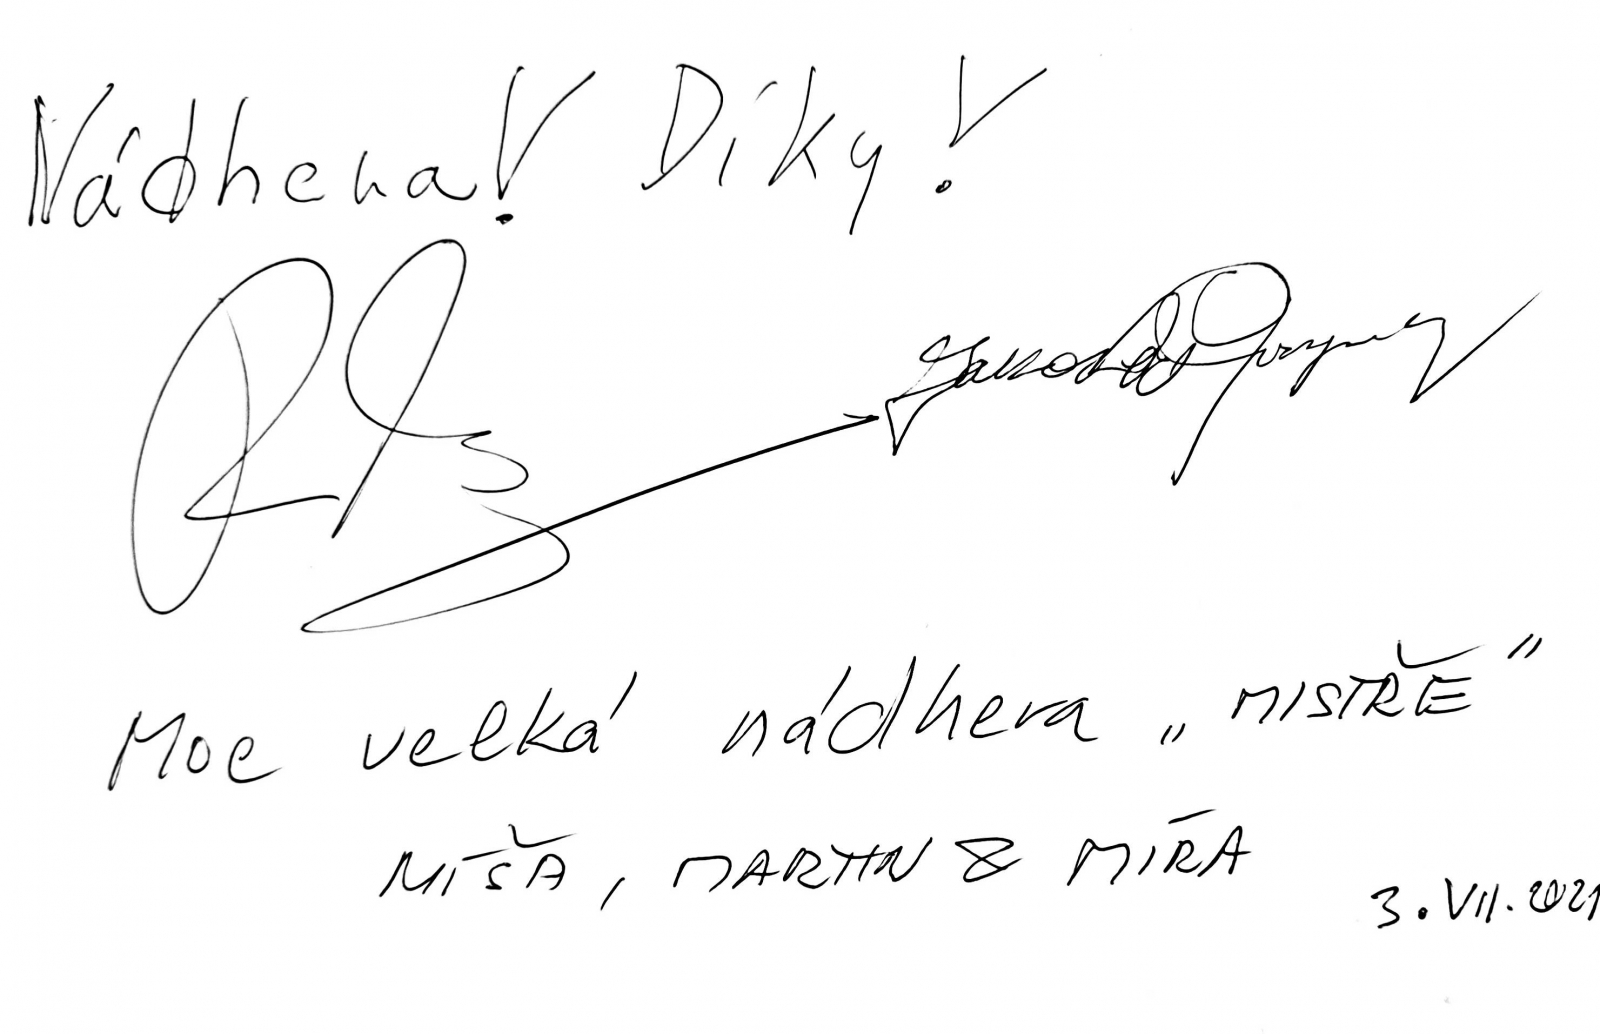 Nádhera! Díky!
Moc velká nádhera „MISTŘE"
MÍŠA, MARTIN & MÍRA
3. VII. 2021